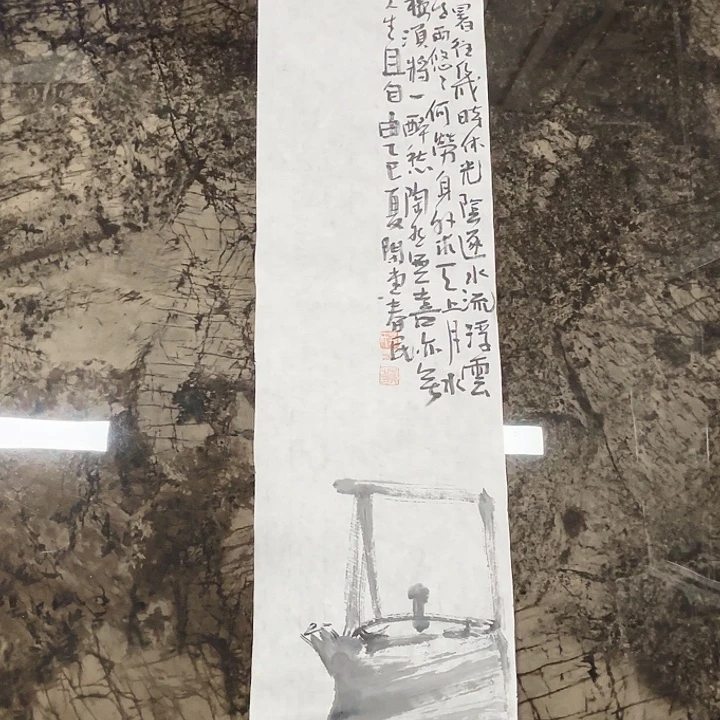 暑往几時休光陰逐水流浮雲
而悠々何勞身外求天上月水
須將一醉愁陶然無喜亦無
生且自由乙巳夏閑堂春民